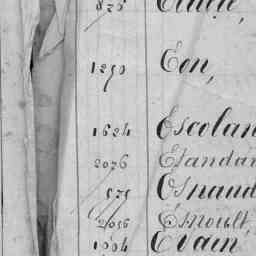 1290 Eon,
1624 Escolan
2076 Etandar
979 Esnaud
2056 Esnoult,
1904 Evain